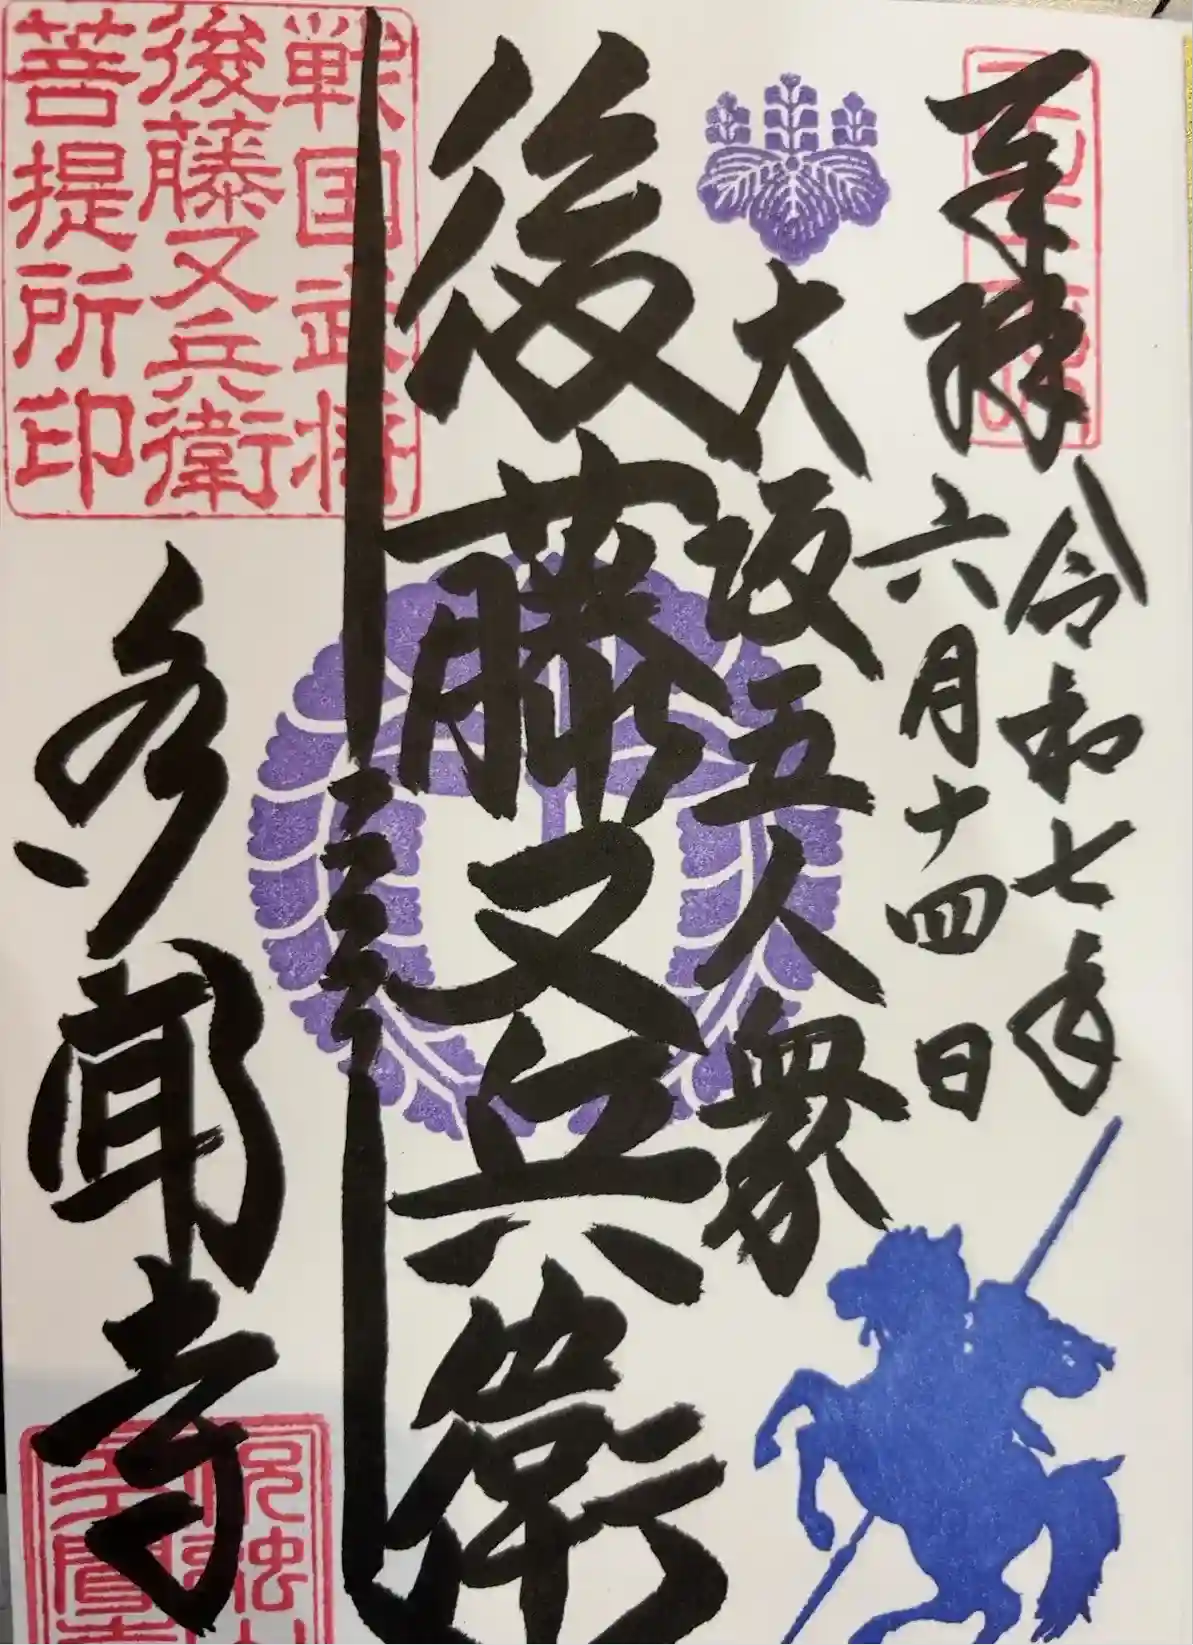 奉拝
令和七年
六月十四日
大坂五人衆
後藤又兵衛
多聞寺
戦国武将
後藤又兵衛
菩提所印